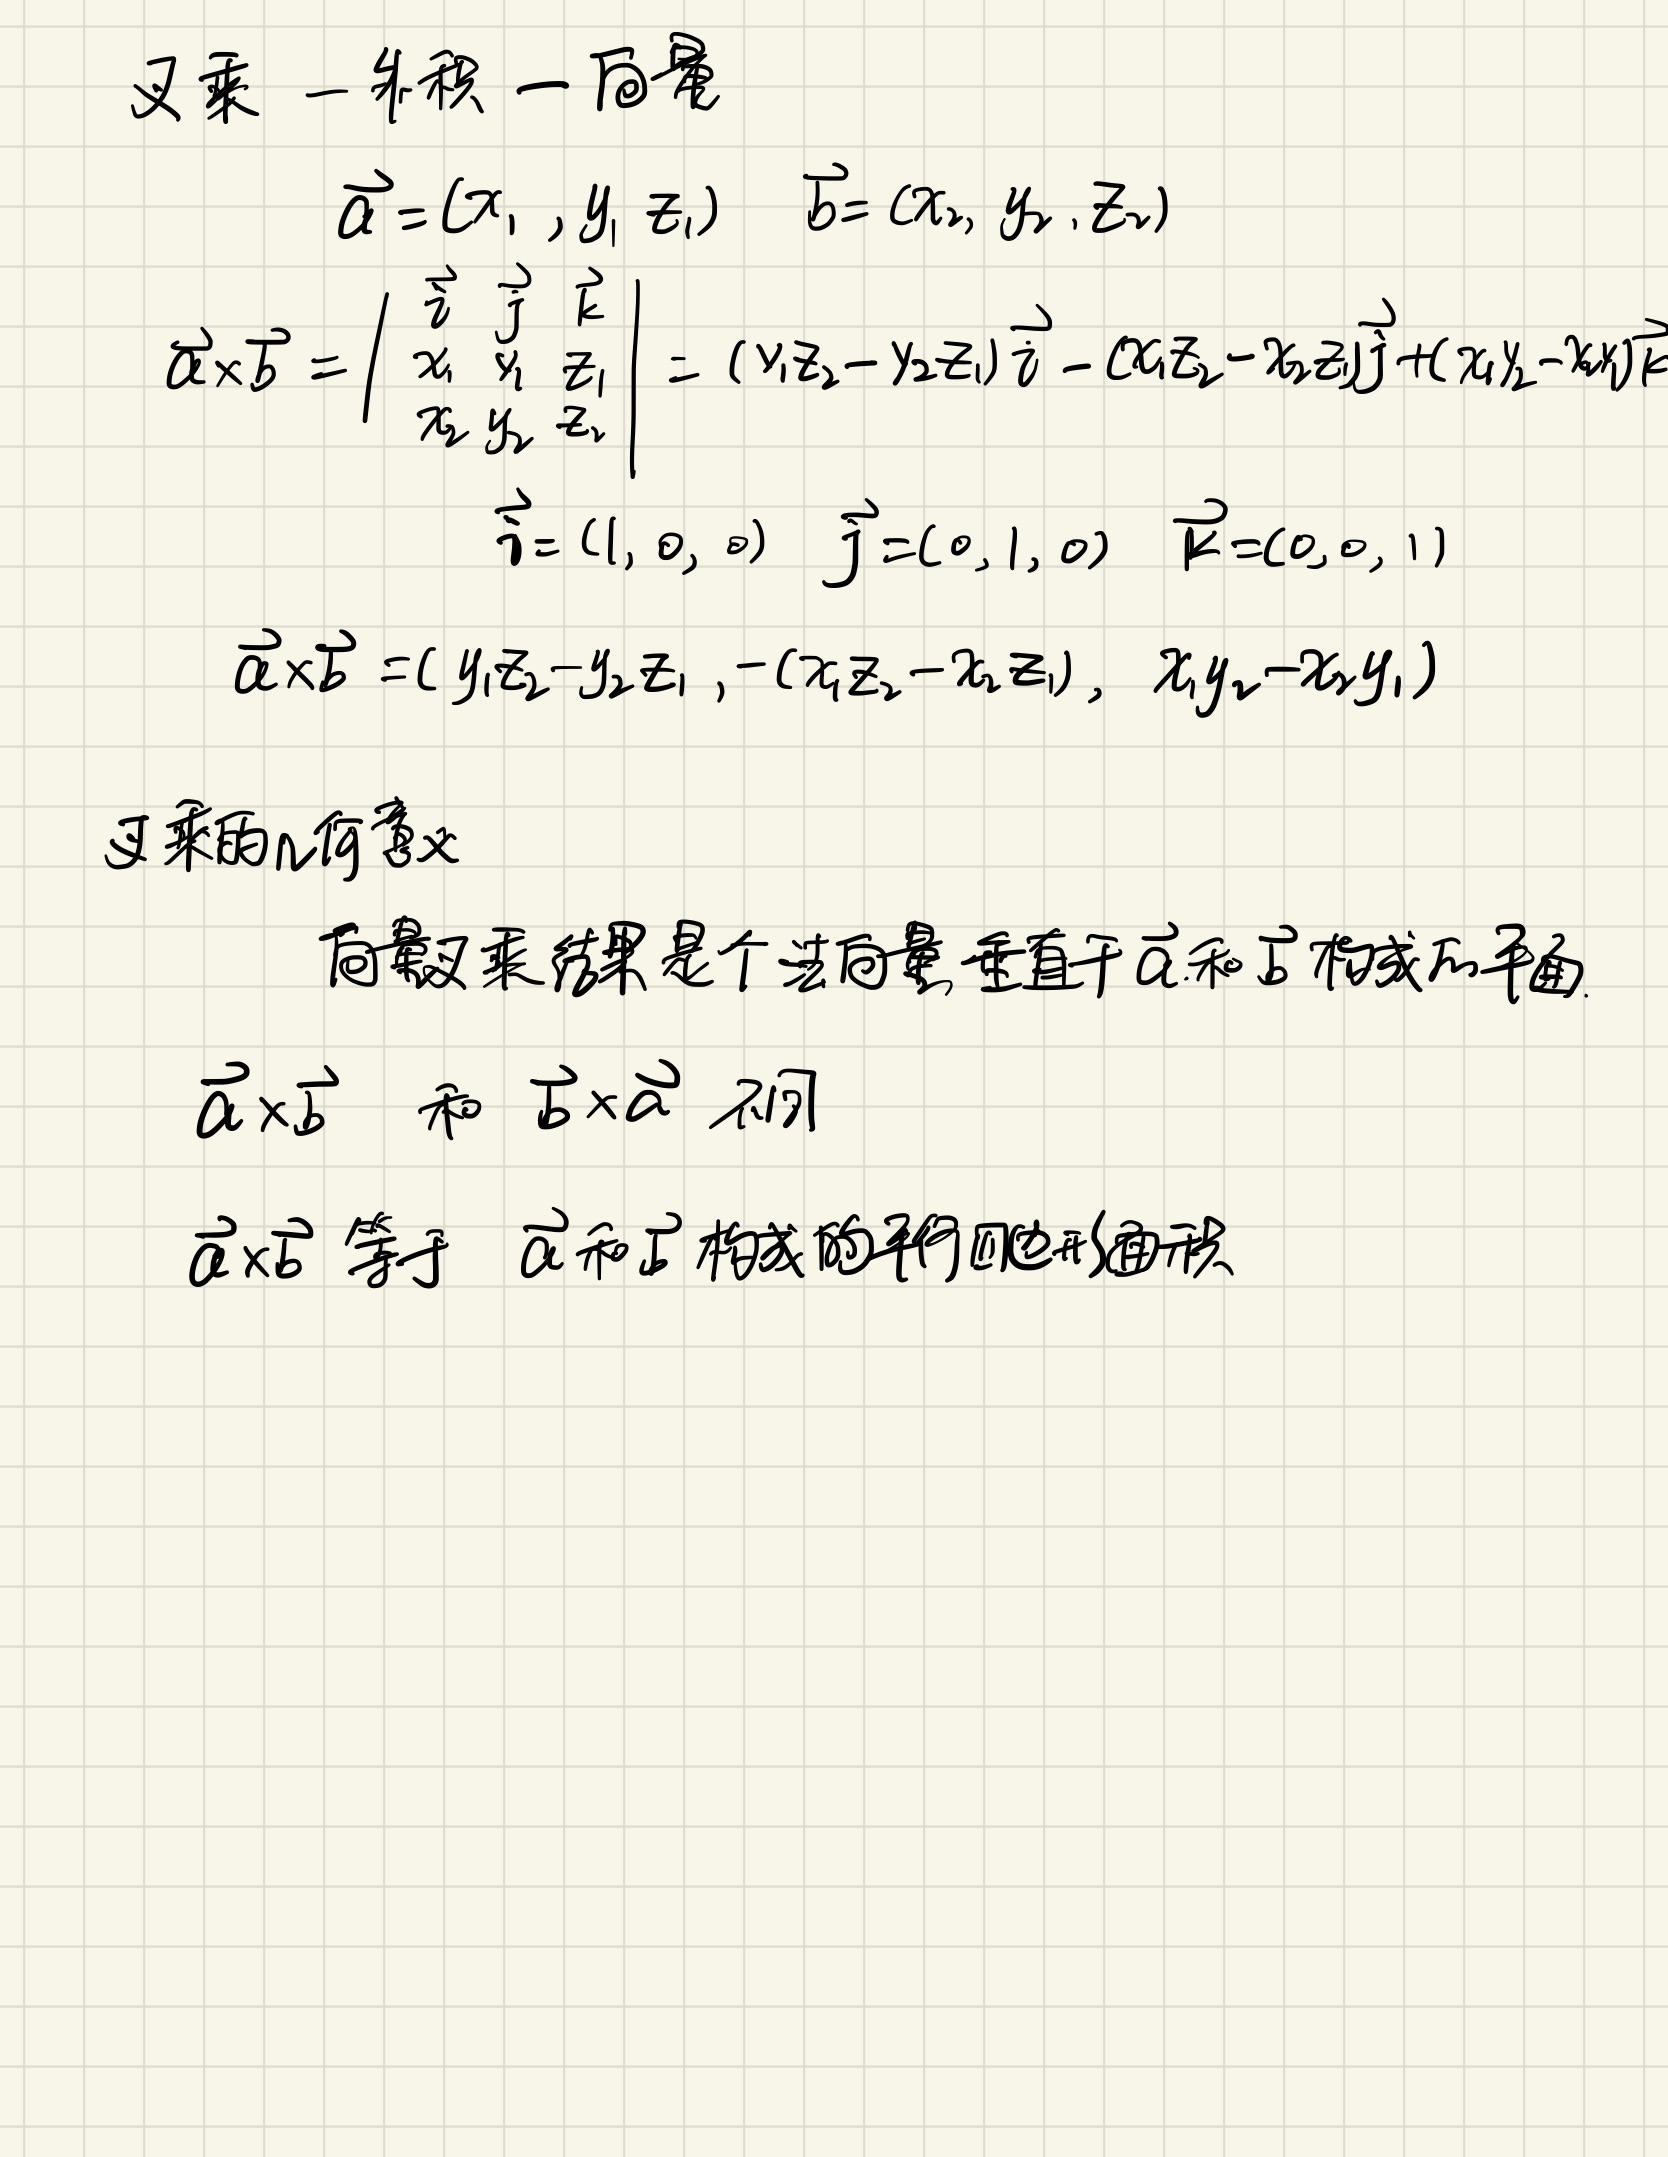 叉乘 — 外积 — 向量
a⃗=(x₁, y₁ z₁) b⃗=(x₂, y₂, z₂)
a⃗×b⃗ = | i⃗ j⃗ k⃗ | = (y₁z₂-y₂z₁)i⃗ - (x₁z₂-x₂z₁)j⃗ + (x₁y₂-x₂y₁)k⃗
x₁ y₁ z₁
x₂ y₂ z₂
i⃗=(1, 0, 0) j⃗=(0, 1, 0) k⃗=(0, 0, 1)
a⃗×b⃗ =(y₁z₂-y₂z₁, -(x₁z₂-x₂z₁), x₁y₂-x₂y₁)
叉乘的几何意义
向量叉乘结果是个法向量, 垂直于a⃗和b⃗构成的平面.
a⃗×b⃗ 和 b⃗×a⃗ 不同
a⃗×b⃗ 等于 a⃗和b⃗构成的平行四边形面积